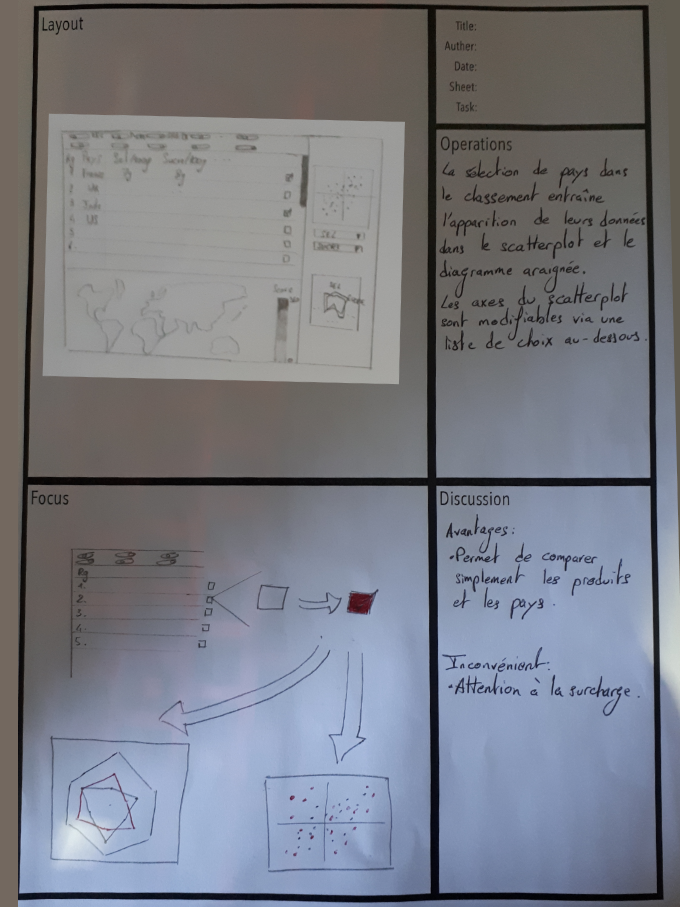 Layout
Rg Pays Sel/100g Sucre/100g ...
1 France
2 UK
3
4 US
5
6
Score
Title:
Auther:
Date:
Sheet:
Task:
Operations
La sélection de pays dans
le classement entraîne
l'apparition de leurs données
dans le scatterplot et le
diagramme araignée.
Les axes du scatterplot
sont modifiables via une
liste de choix au-dessous.
Focus
Rg
1.
2.
3.
4.
5.
Discussion
Avantages:
• Permet de comparer
simplement les produits
et les pays.
Inconvénient:
• Attention à la surcharge.